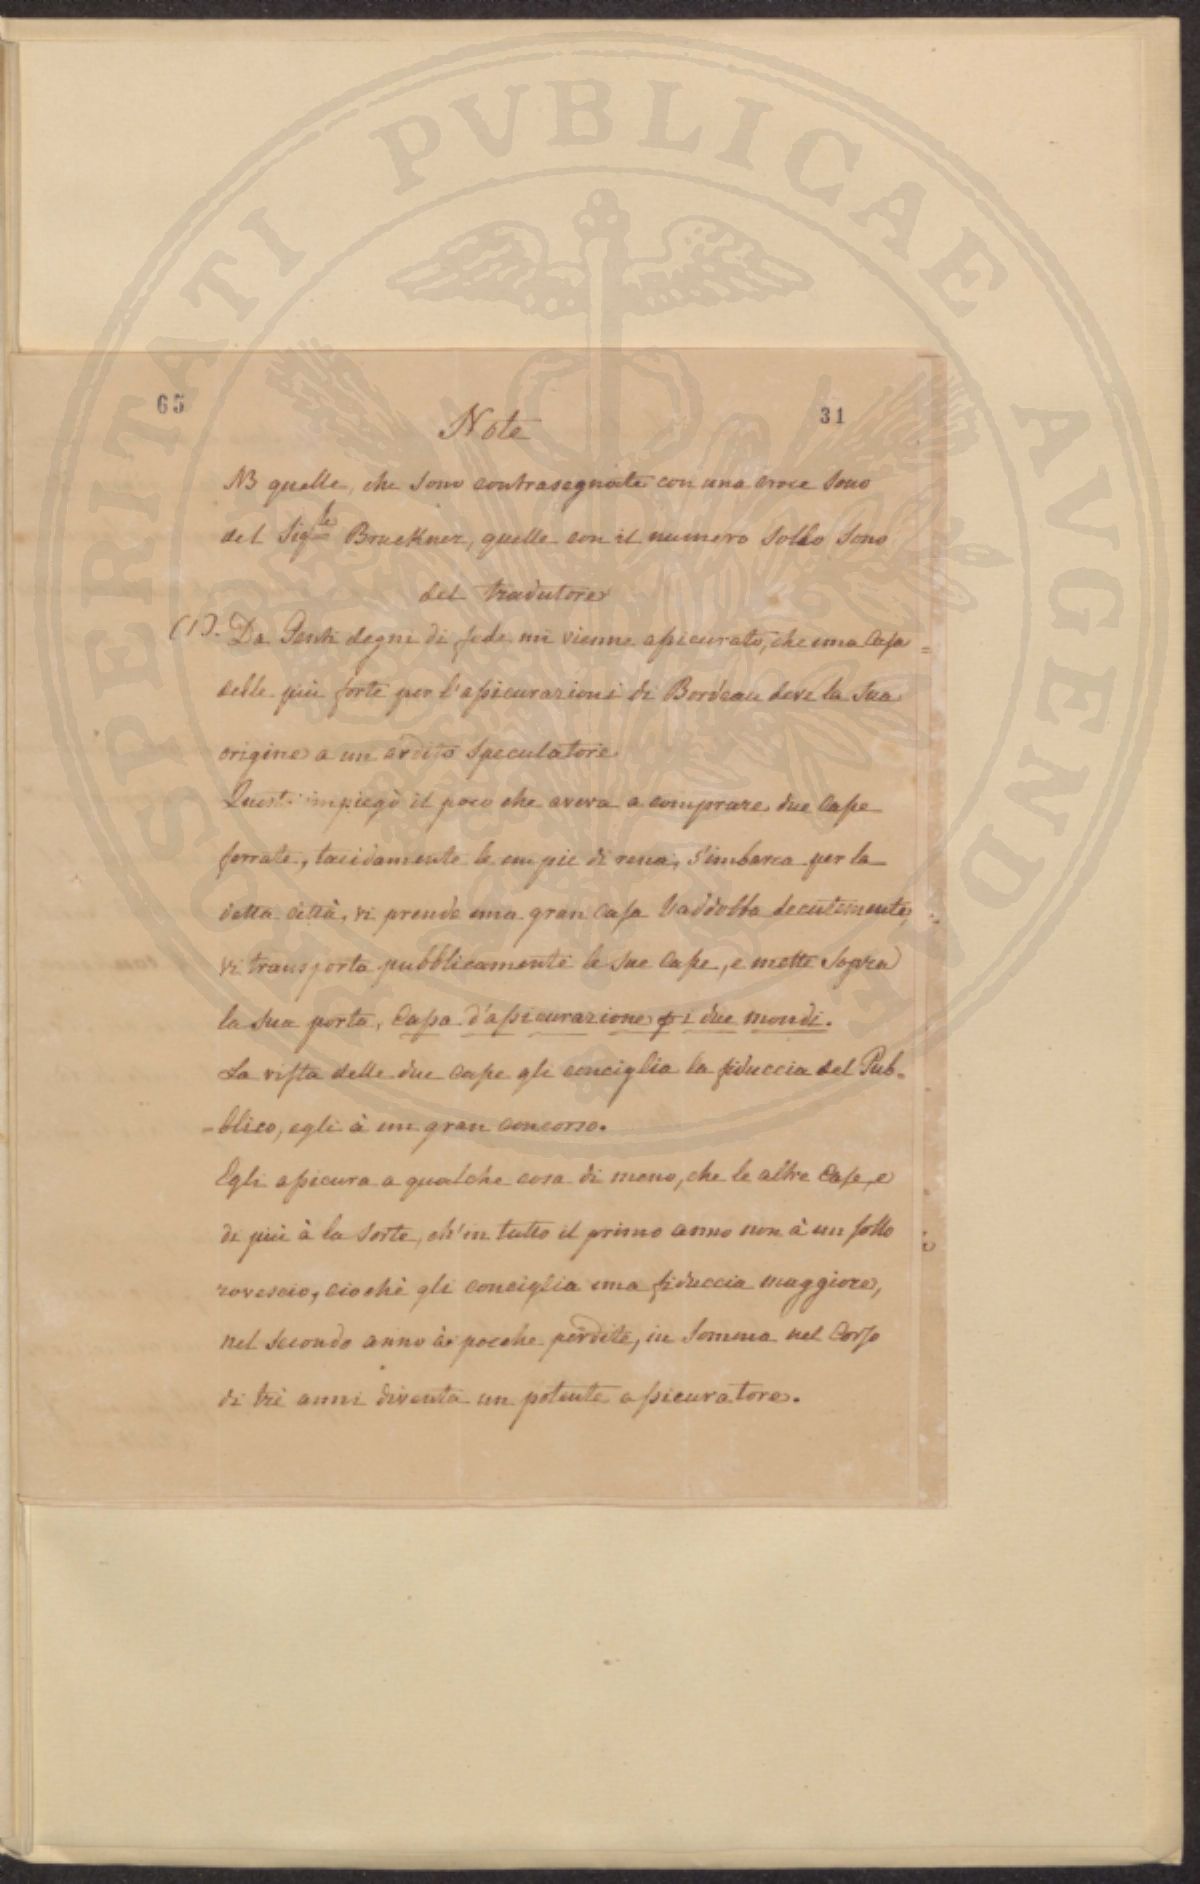 PROSPERITATI PVBLICAE AVGENDAE
65
31
Note
NB quelle, che sono contrasegnate con una croce sono
del Sig.le Bruckner, quelle con il numero sollo sono
del tradutore
(1). Da Genti degni di fede mi vienne assicurato, che una Casa
delle più forte per l'assicurazioni di Bordeau deve la sua
origine a un ardito speculatore
Questi impiegò il poco che aveva a comprare due Casse
ferrate, tacidamente le empie di rena, s'imbarca per la
detta città, vi prende una gran Casa l'addobba decentemente,
vi transporta pubblicamente le sue Casse, e mette sopra
la sua porta, Cassa d'assicurazione i due mondi.
La vista delle due casse gli conciglia la fiduccia del Pub-
-blico, egli à un gran concorso.
Egli assicura a qualche cosa di meno, che le altre Case, e
di più à la sorte, ch'in tutto il primo anno non à un sollo
rovescio, ciochè gli conciglia una fiduccia maggiore,
nel secondo anno à poche perdite, in somma nel Corso
di tré anni diventa un potente assicuratore.